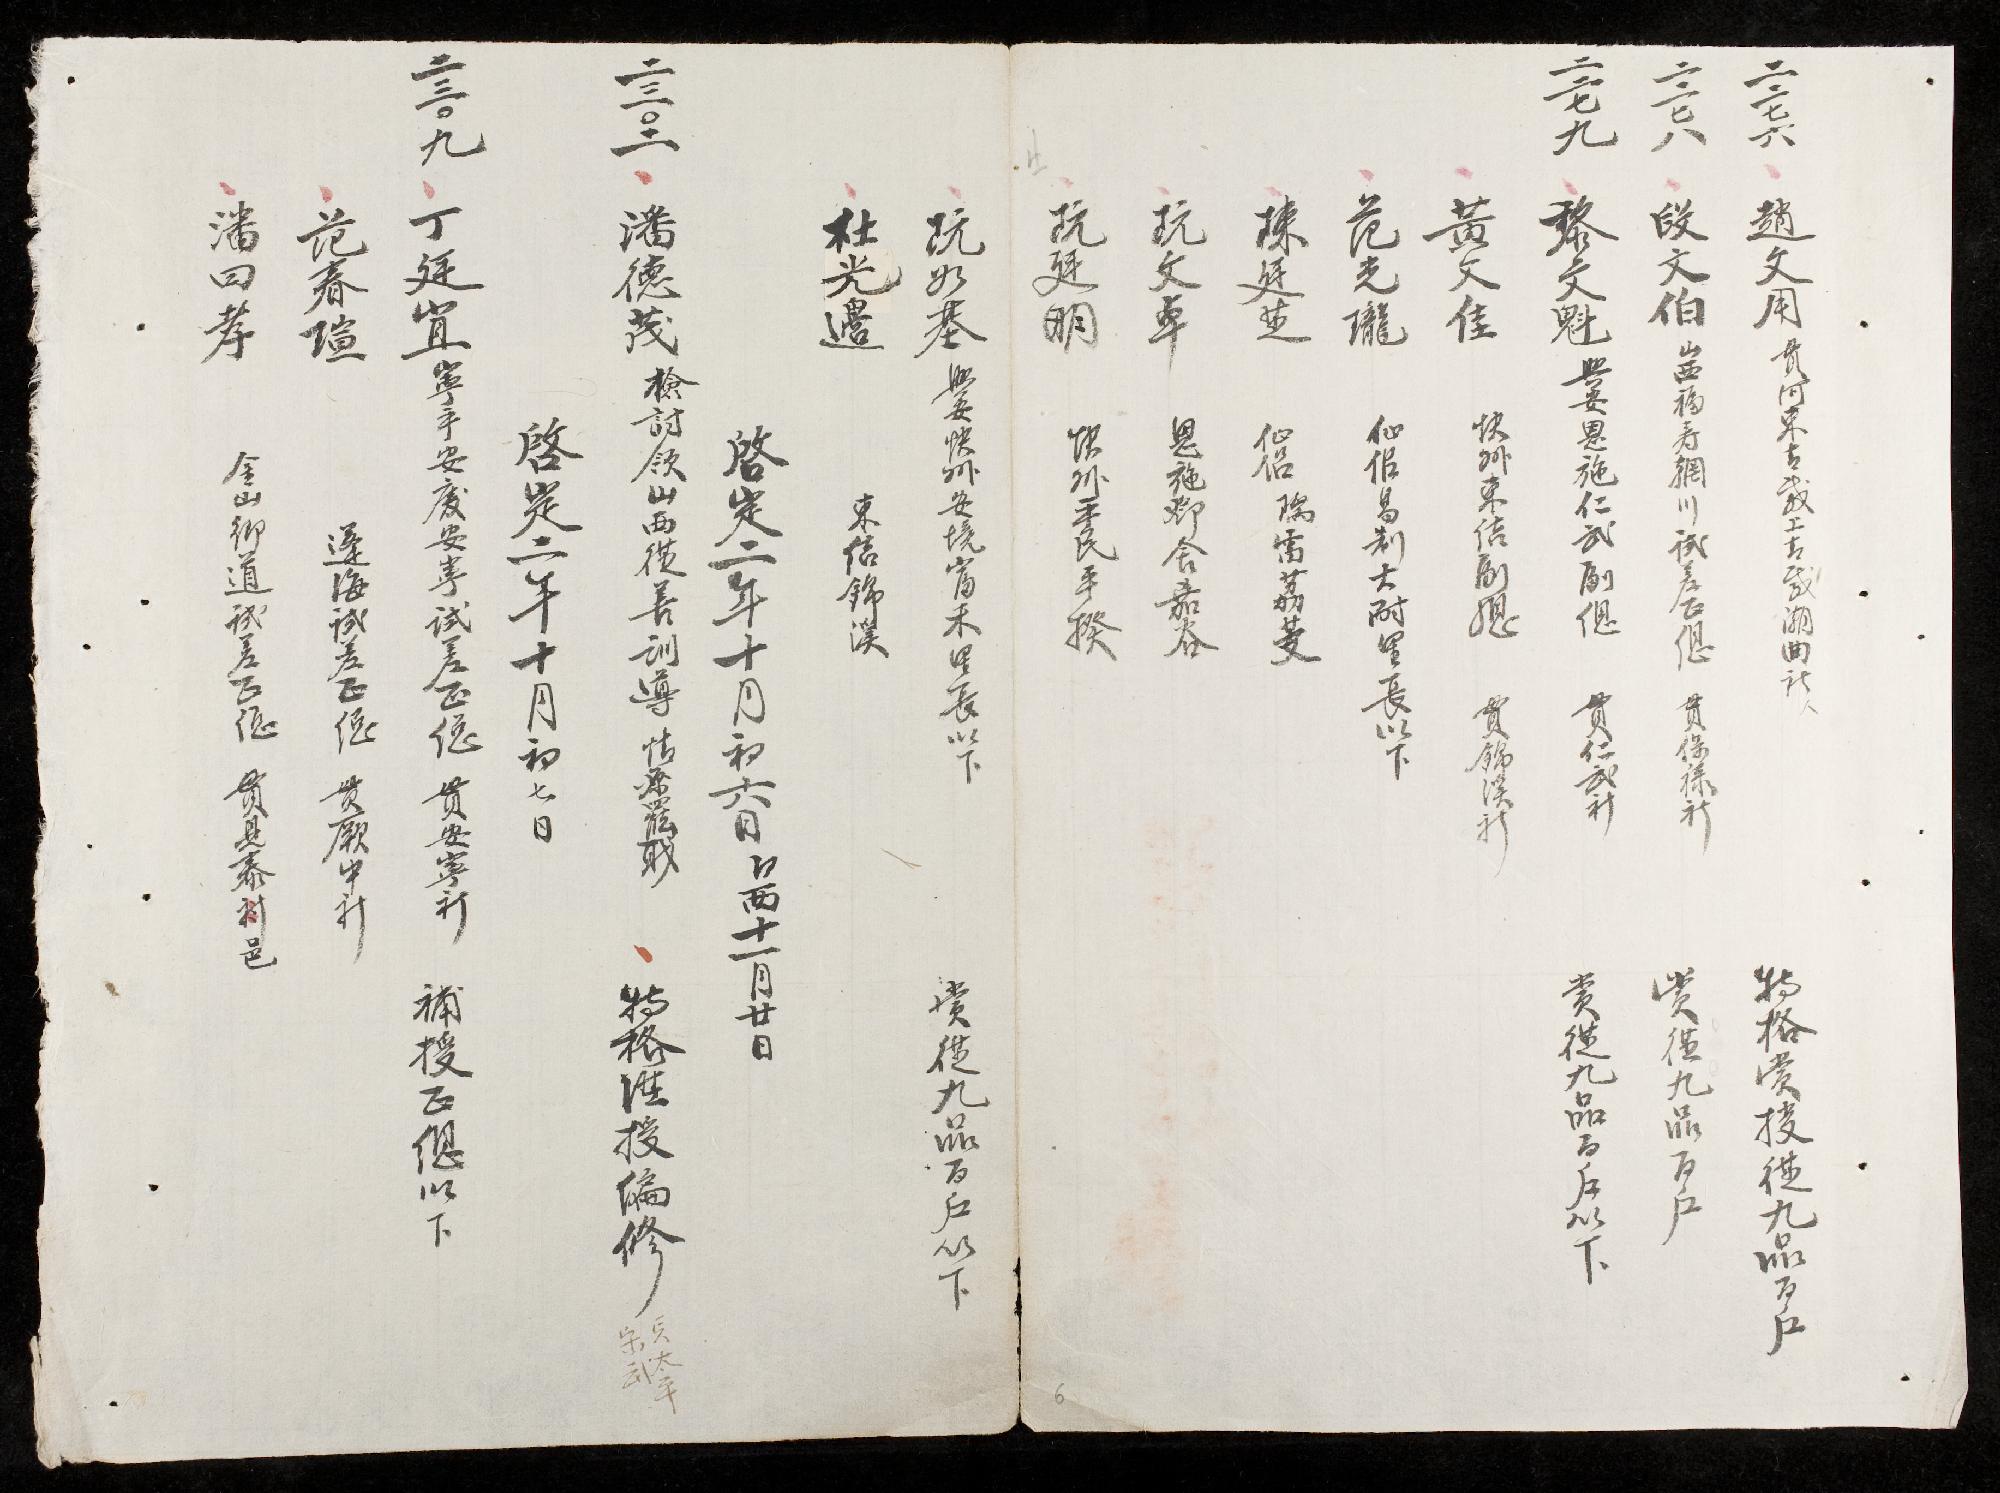 二二七六 趙文用 貫河東 社人 特格賞授從九品百戶
二二七八 段文伯 山西福寿網川試差正總 貫保祿社 賞從九品百戶
二二七九 黎文魁 興安恩施仁武副總 貫仁武社 賞從九品百戶以下
黃文佳 快州東結副總 貫錦溪社
范光瓏 仙侶昌制大耐里長以下
陳廷楚 仙侶瑞雷荔芰
阮文卓 恩施 舍嘉谷
阮廷明 快州平民平揆
6
阮如基 興安快州安境富禾里長以下 賞從九品百戶以下
杜光邉 東結錦溪
啓定二年十月初六日 西十一月廿日
二三〇二 潘德茂 檢討領山西從善訓導 特格准授編修
啓定二年十月初七日
二三〇九 丁廷宜 寧平安慶安寧試差正總 貫安寧社 補授正總以下
范春瑄 遵海試差正總 貫厥中社
潘曰孝 金山鄉道試差正總 貫 邑